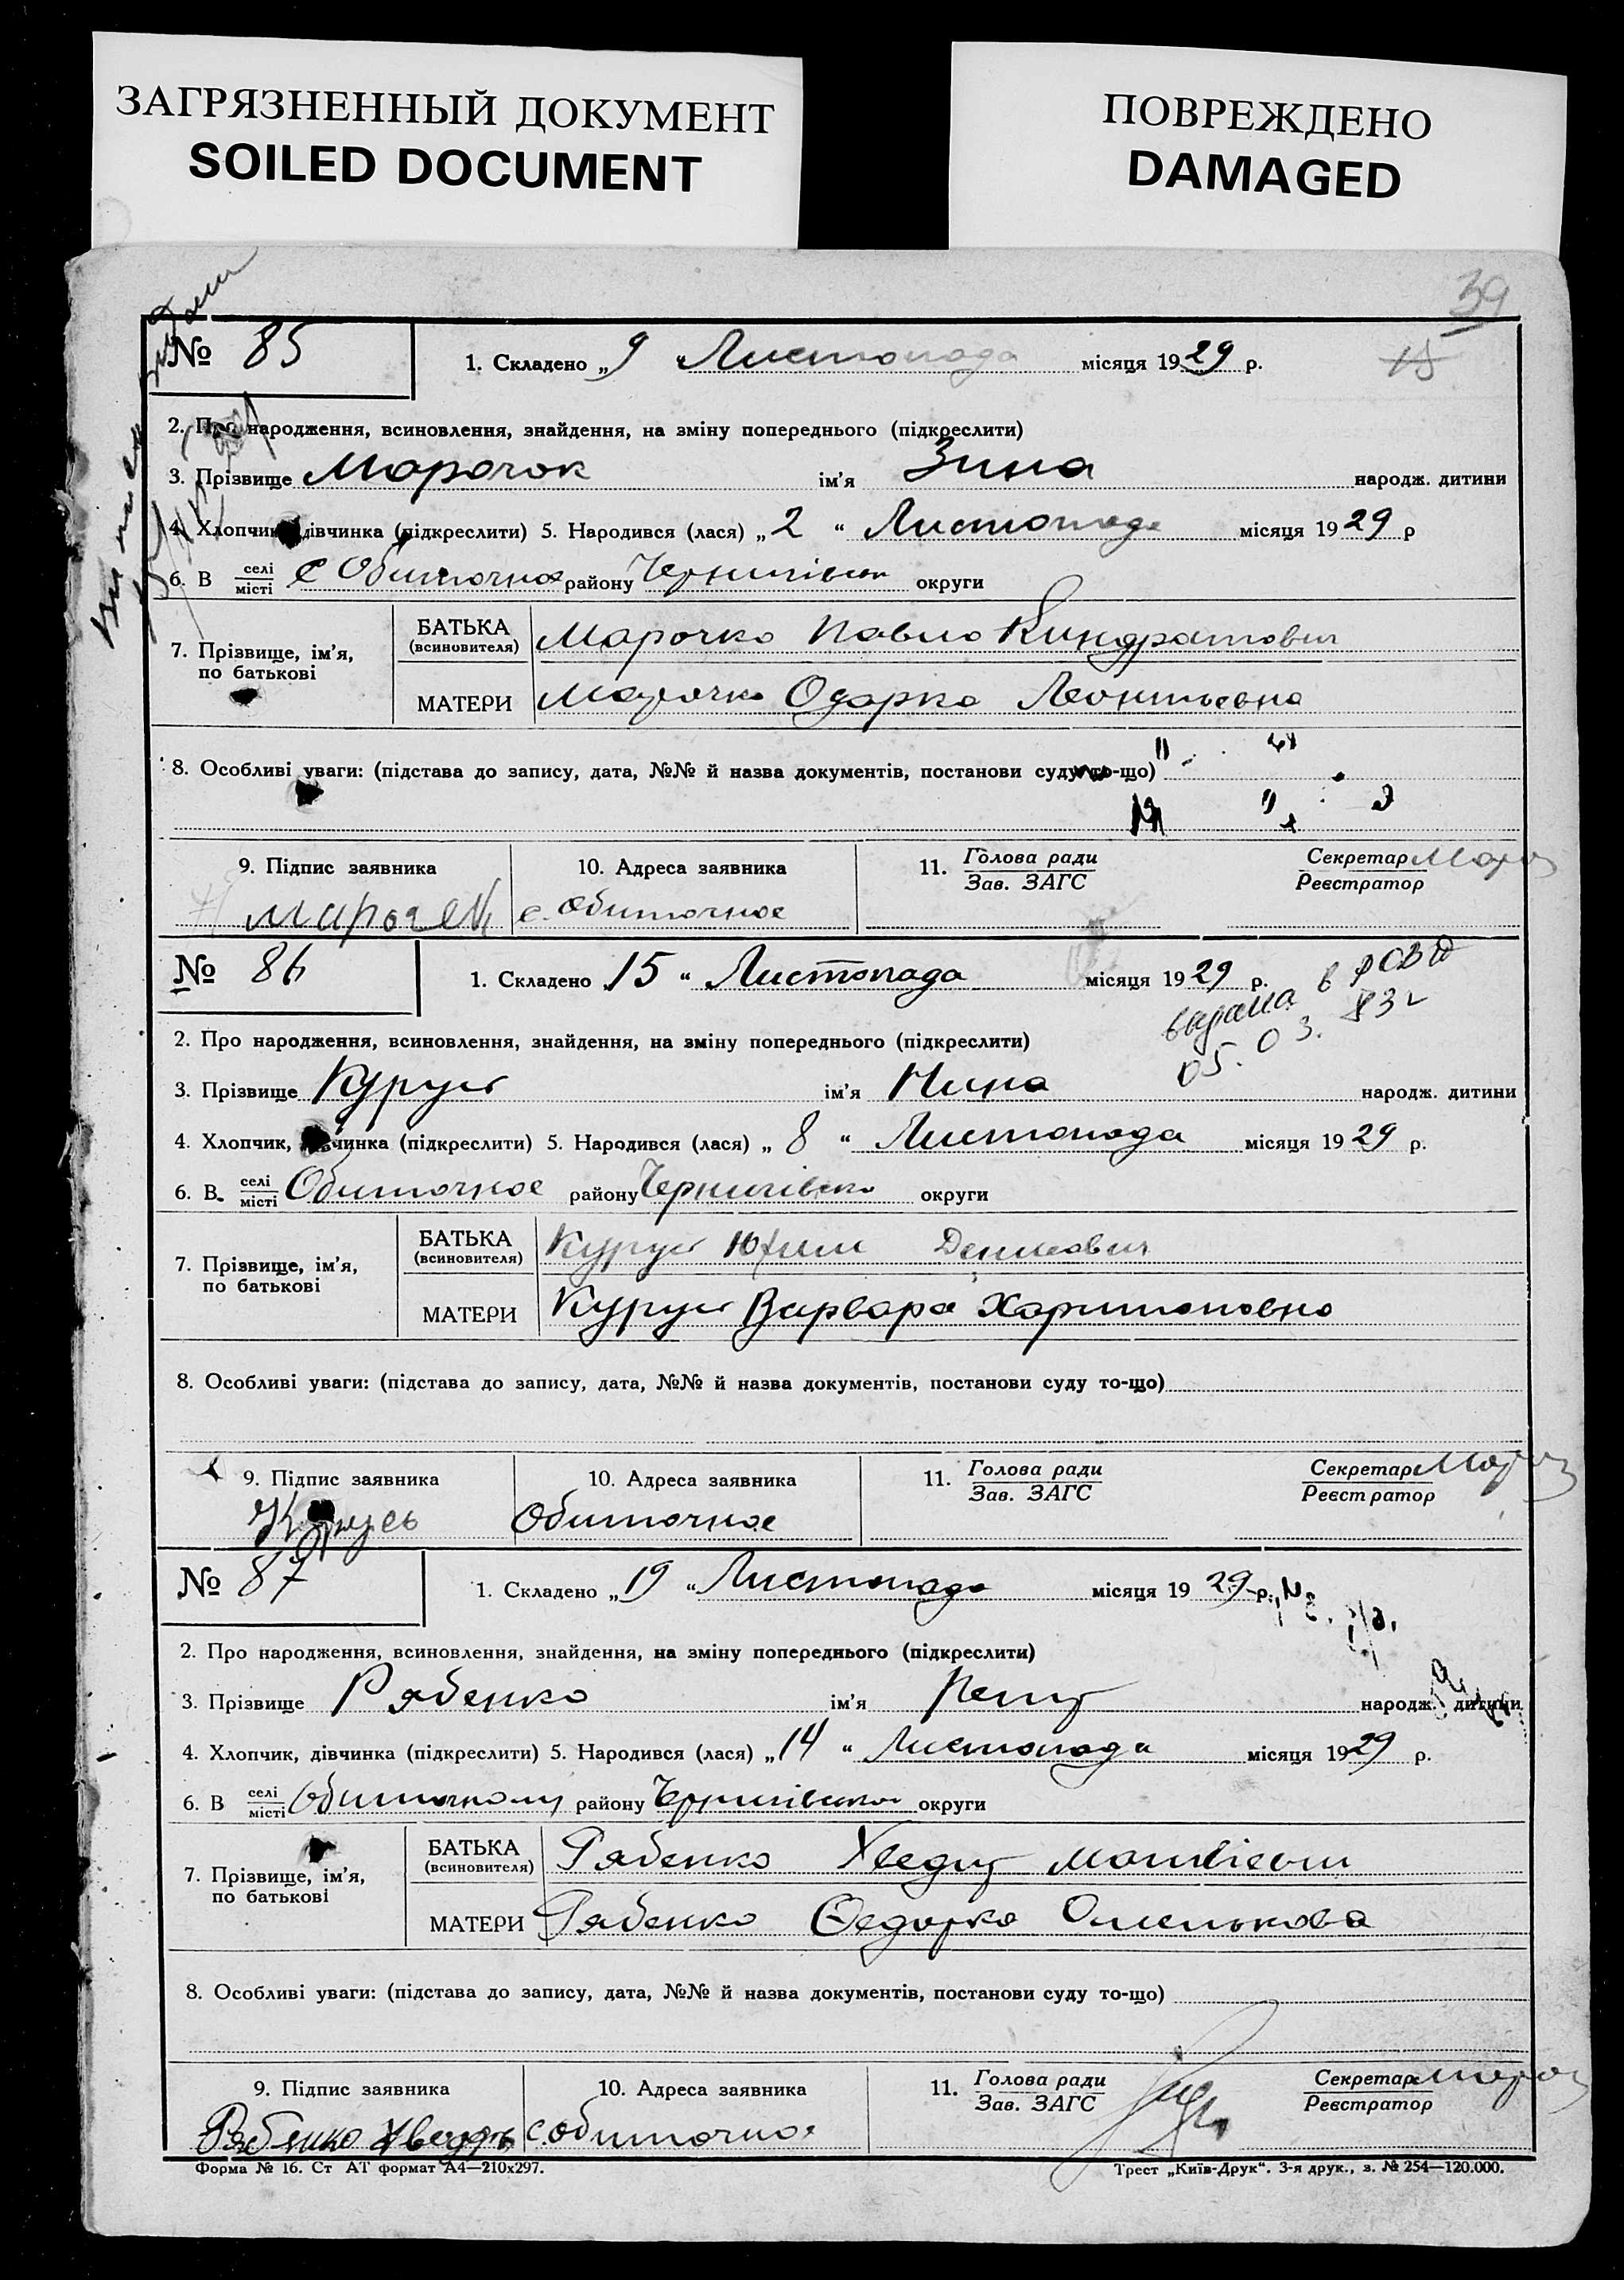 ЗАГРЯЗНЕННЫЙ ДОКУМЕНТ
SOILED DOCUMENT
ПОВРЕЖДЕНО
DAMAGED
39
15
№ 85
1. Складено „9 Листопада місяця 1929 р.
2. Про народження, всиновлення, знайдення, на зміну попереднього (підкреслити)
3. Прізвище Марочок ім'я Зина народж. дитини
4. Хлопчик, дівчинка (підкреслити) 5. Народився (лася) „2“ Листопада місяця 1929 р
6. В селі/місті с Обиточное району Чернигівськ округи
7. Прізвище, ім'я, по батькові
БАТЬКА (всиновителя) Марочко Павло Киндратович
МАТЕРИ Марочко Одарка Леонтьевна
8. Особливі уваги: (підстава до запису, дата, №№ й назва документів, постанови суду то-що)
9. Підпис заявника
10. Адреса заявника
11. Голова ради / Зав. ЗАГС
Секретар / Реєстратор Мороз
Марочек
с. Обиточное
№ 86
1. Складено 15“ Листопада місяця 1929 р.
видана в РОВД
05. 03. 83г
2. Про народження, всиновлення, знайдення, на зміну попереднього (підкреслити)
3. Прізвище Курусь ім'я Нина народж. дитини
4. Хлопчик, дівчинка (підкреслити) 5. Народився (лася) „8“ Листопада місяця 1929 р.
6. В селі/місті Обиточное району Чернигівсько округи
7. Прізвище, ім'я, по батькові
БАТЬКА (всиновителя) Курусь Юхим Денисович
МАТЕРИ Курусь Варвара Харитоновна
8. Особливі уваги: (підстава до запису, дата, №№ й назва документів, постанови суду то-що)
9. Підпис заявника
10. Адреса заявника
11. Голова ради / Зав. ЗАГС
Секретар / Реєстратор Мороз
Курусь
Обиточное
№ 87
1. Складено „19“ Листопада місяця 1929 р.
2. Про народження, всиновлення, знайдення, на зміну попереднього (підкреслити)
3. Прізвище Рябенко ім'я Петр народж. дитини
4. Хлопчик, дівчинка (підкреслити) 5. Народився (лася) „14“ Листопада місяця 1929 р.
6. В селі/місті Обиточному району Чернигівсько округи
7. Прізвище, ім'я, по батькові
БАТЬКА (всиновителя) Рябенко Хведір Матвієвич
МАТЕРИ Рябенко Федорка Омелькова
8. Особливі уваги: (підстава до запису, дата, №№ й назва документів, постанови суду то-що)
9. Підпис заявника
10. Адреса заявника
11. Голова ради / Зав. ЗАГС
Секретар / Реєстратор Мороз
Рябенко Хведір
с. Обиточное
Форма № 16. Ст АТ формат А4—210х297.
Трест „Київ-Друк“. 3-я друк., з. № 254—120.000.